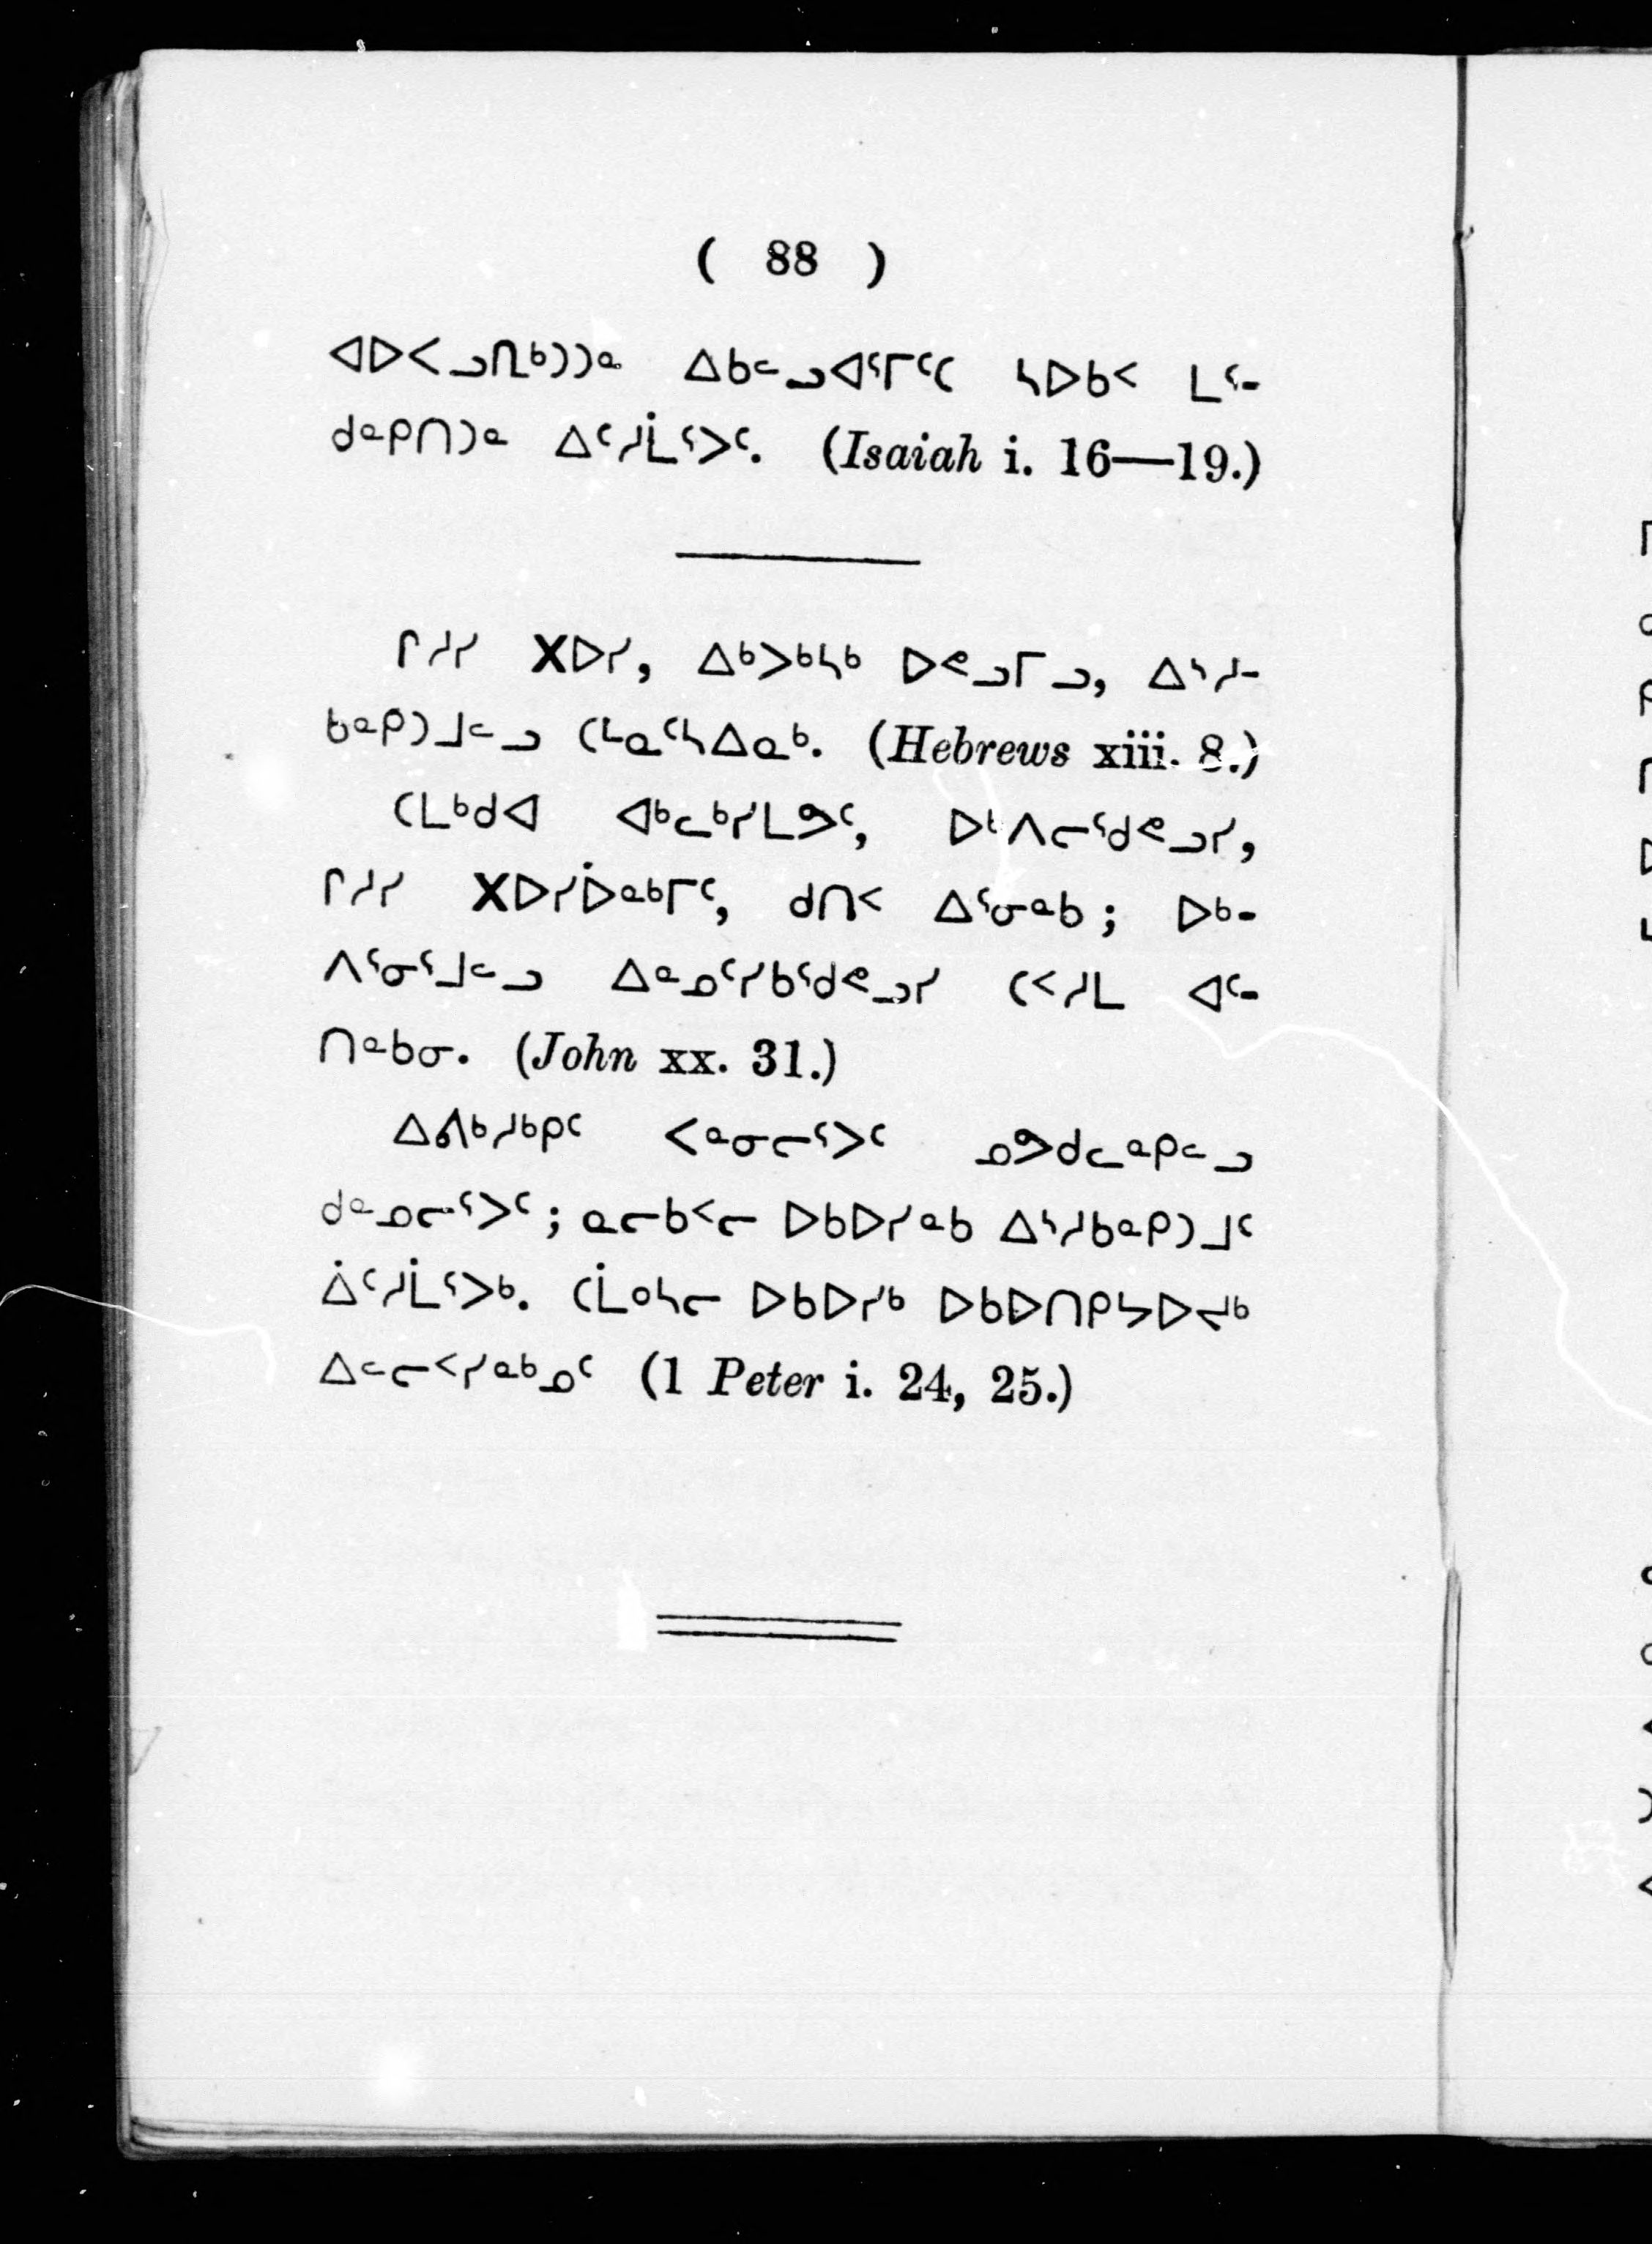 ( 88 )
ᐊᐅᐸᓗᒐᒃᑐᑐᓐ ᐃᑲᓪᓗᐊᕐᒥᑦᑕ ᓴᐅᑲᑉ ᒪᕐ-
ᑯᓐᑭᑎᑐᓐ ᐃᑦᓱᒫᕐᐳᑦ. (Isaiah i. 16—19.)
ᒋᓱᓯ Xᐅᓯ, ᐃᒃᐳᒃᓴᒃ ᐅᕙᓗᒥᓗ, ᐃᔅᓱ-
ᑲᓐᑭᑐᒧᓪᓗ ᑕᒻᓇᑦᓴᐃᓇᒃ. (Hebrews xiii. 8.)
ᑕᒪᒃᑯᐊ ᐊᒃᓚᒃᓯᒪᕗᑦ, ᐅᒃᐱᓕᕐᑯᕙᓗᓯ,
ᒋᓱᓯ Xᐅᓯᐆᓐᒃᒥᑦ, ᑯᑎᑉ ᐃᕐᓂᓐᑲ ; ᐅᒃ-
ᐱᕐᓂᕐᒧᓪᓗ ᐃᓐᓄᑦᓯᑲᕐᑯᕙᓗᓯ ᑕᑉᓱᒪ ᐊᑦ-
ᑎᓐᑲᓂ. (John xx. 31.)
ᐃᕕᒃᓱᒃᑭᑦ ᐸᓐᓂᓕᕐᐳᑦ ᓄᕗᑯᓚᓐᑭᓪᓗ
ᑯᓐᓄᓕᕐᐳᑦ ; ᓇᓕᑲᑉᓕ ᐅᑲᐅᓯᓐᑲ ᐃᔅᓱᑲᓐᑭᑐᒧᑦ
ᐄᑦᓱᒫᕐᐳᒃ. ᑕᒫᓐᓴᓕ ᐅᑲᐅᓯᒃ ᐅᑲᐅᑎᑭᔭᐅᔪᒃ
ᐃᓪᓕᑉᓯᓐᒃᓄᑦ (1 Peter i. 24, 25.)